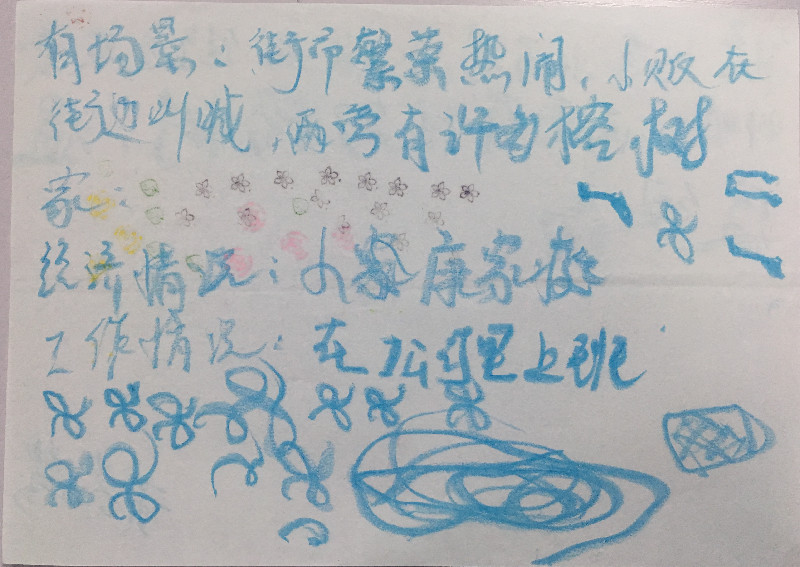 有场景：街市繁荣热闹，小贩在
街边叫喊，两旁有许多榕树
家：
经济情况：小家康家庭
工作情况：在公司里上班